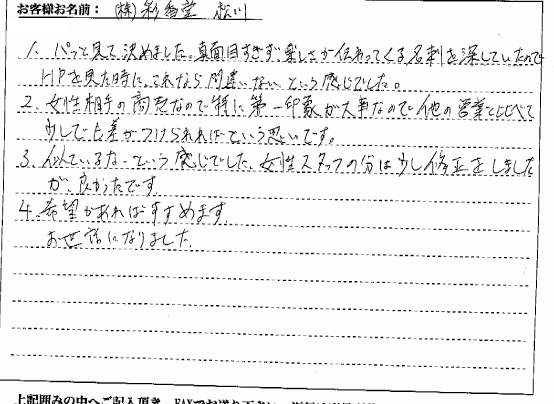 お客様お名前： (株)彩香堂 松川
1. パッと見て決めました。真面目すぎず、楽しさが伝わってくる名刺を探していたので
HPを見た時に、これなら間違いないという感じでした。
2. 女性相手の商売なので特に第一印象が大事なので他の営業と比べて
少しでも差がつけられればという思いです。
3. 似ているなーという感じでした。女性スタッフの分は少し修正をしました
が、良かったです。
4. 希望があればすすめます。
お世話になりました。
上記囲みの中へご記入頂き、FAXでお送り下さい。